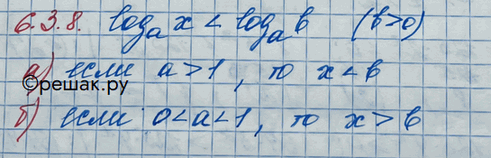 6.3.8. log_a x < log_a b (b>0)
а) если a>1, то x<b
©решак.ру
б) если 0<a<1, то x>b